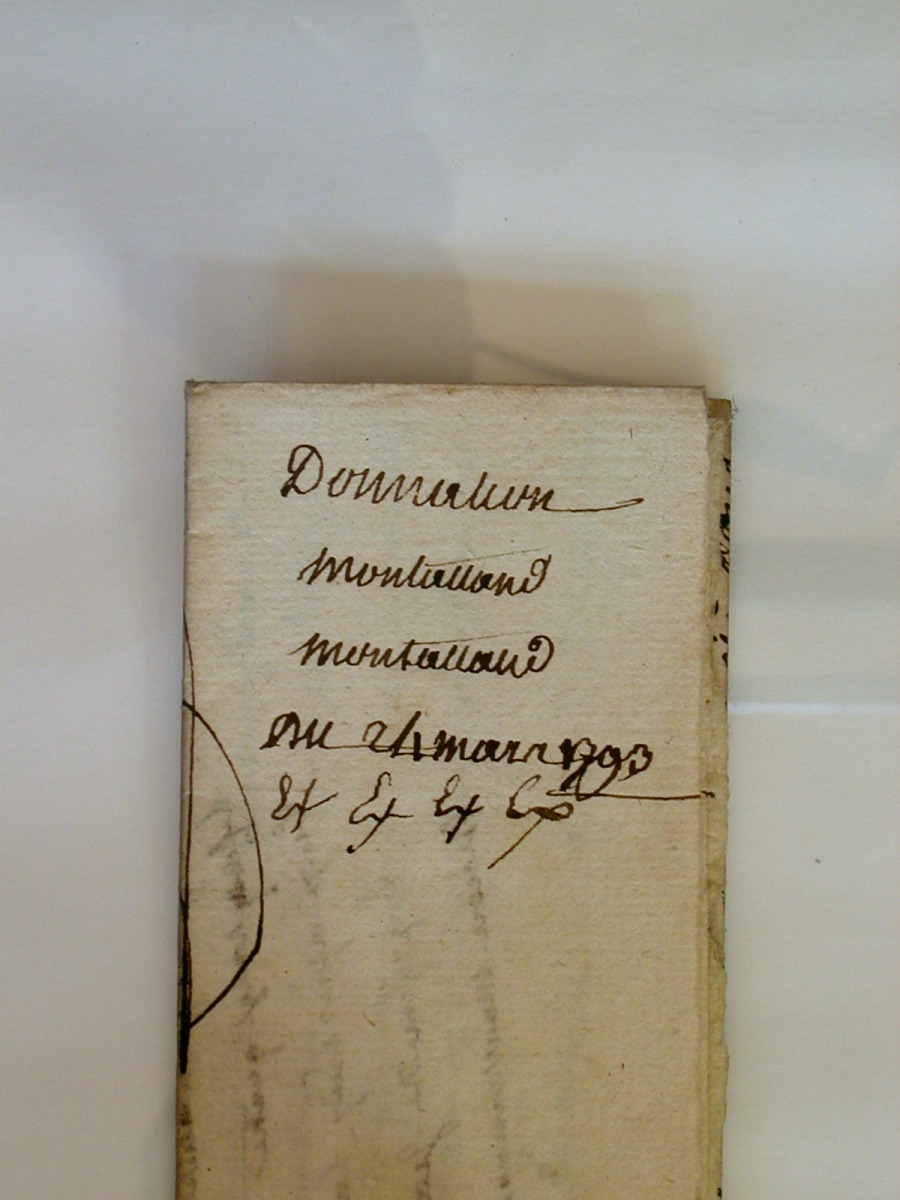 Donnation
montalland
montalland
Du 24 mars 1793
Ex Ex Ex Exp